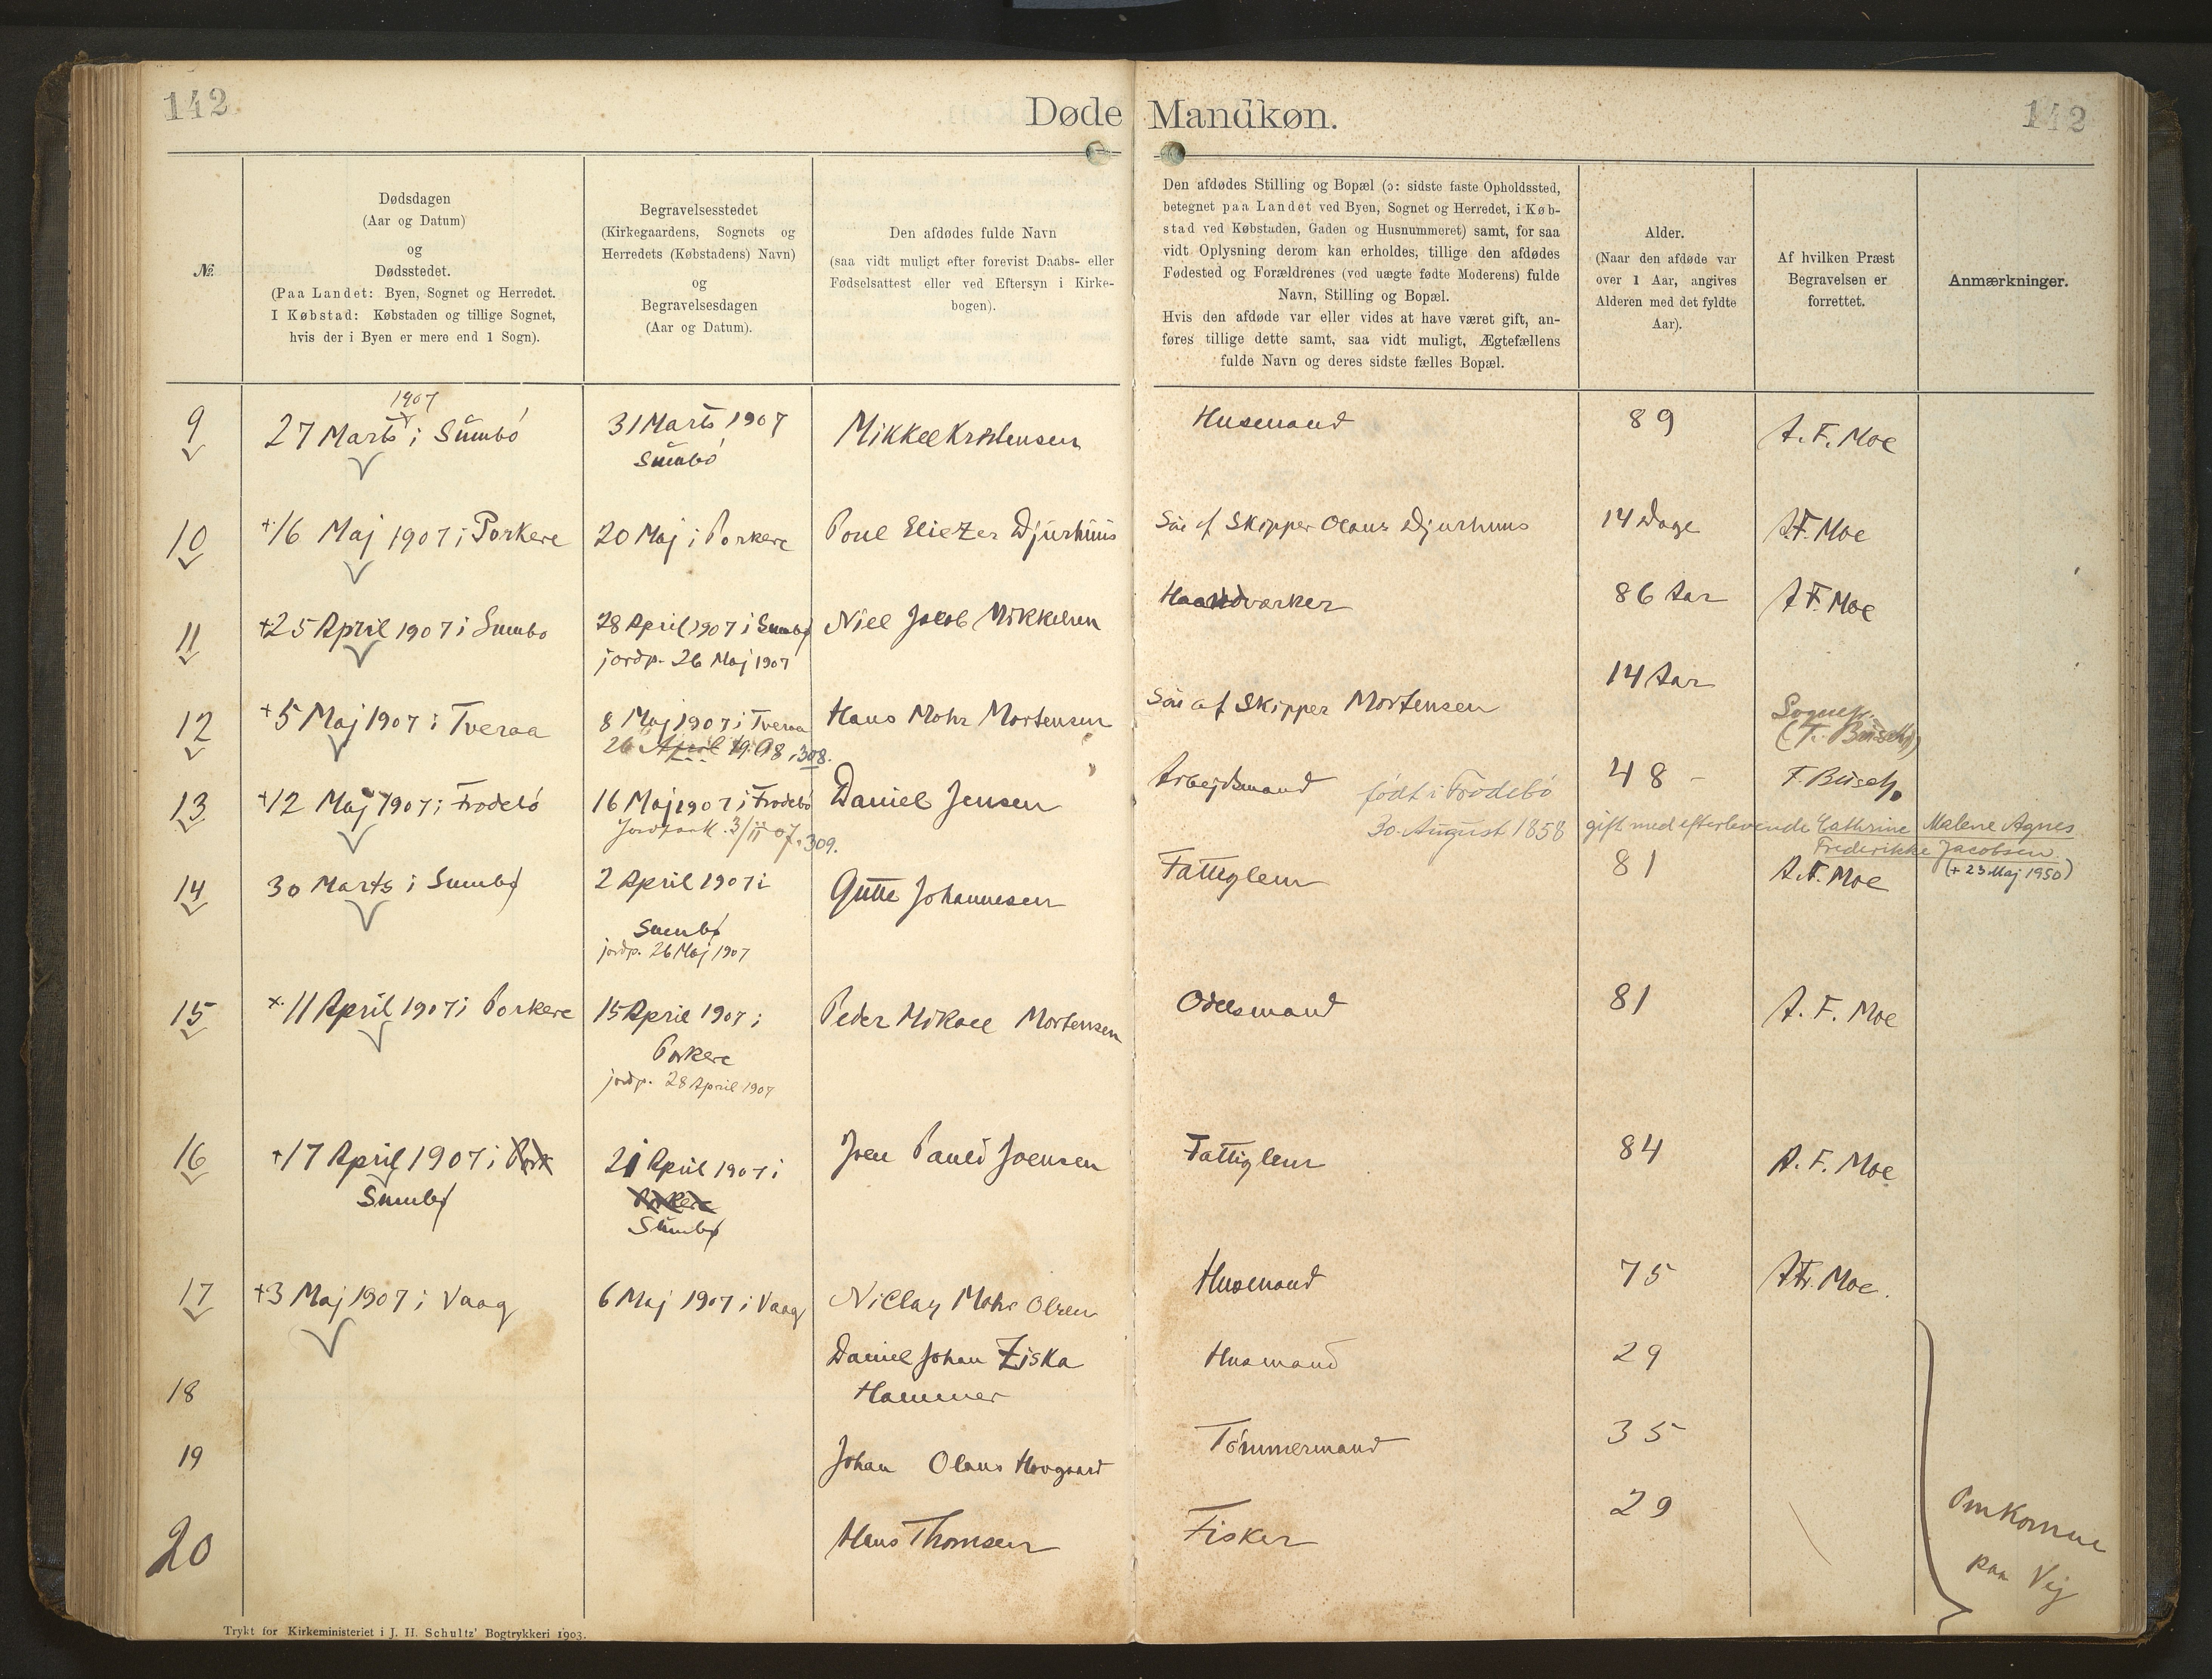 142
Døde Mandkøn.
142
№
Dødsdagen
(Aar og Datum)
og
Dødsstedet.
(Paa Landet: Byen, Sognet og Herredet.
I Købstad: Købstaden og tillige Sognet,
hvis der i Byen er mere end 1 Sogn).
Begravelsesstedet
(Kirkegaardens, Sognets og
Herredets (Købstadens) Navn)
og
Begravelsesdagen
(Aar og Datum).
Den afdødes fulde Navn
(saa vidt muligt efter forevist Daabs- eller
Fødselsattest eller ved Eftersyn i Kirke-
bogen).
Den afdødes Stilling og Bopæl (ɔ: sidste faste Opholdssted,
betegnet paa Landet ved Byen, Sognet og Herredet, i Køb-
stad ved Købstaden, Gaden og Husnummeret) samt, for saa
vidt Oplysning derom kan erholdes, tillige den afdødes
Fødested og Forældrenes (ved uægte fødte Moderens) fulde
Navn, Stilling og Bopæl.
Hvis den afdøde var eller vides at have været gift, an-
føres tillige dette samt, saa vidt muligt, Ægtefællens
fulde Navn og deres sidste fælles Bopæl.
Alder.
(Naar den afdøde var
over 1 Aar, angives
Alderen med det fyldte
Aar).
Af hvilken Præst
Begravelsen er
forrettet.
Anmærkninger.
9
1907
27 Marts i Sumbö
31 Marts 1907
Sumbö
Mikkel Kristensen
Husmand
89
A. F. Moe
10
+16 Maj 1907 i Porkere
20 Maj i Porkere
Poul Eliezer Djurhuus
Sön af Skipper Olaus Djurhuus
14 Dage
A.F. Moe
11
+25 April 1907 i Sumbø
28 April 1907 i Sumbø
jordp. 26 Maj 1907
Niel Jacob Mikkelsen
Haandværker
86 Aar
A F. Moe
12
+5 Maj 1907 i Tveraa
8 Maj 1907 i Tveraa
26 April 1908, 308.
Hans Mohr Mortensen
Sön af Skipper Mortensen
14 Aar
Sognep.
(F. Büsch)
13
+12 Maj 1907 i Frodebö
16 Maj 1907 i Frodebö
Jordpaak. 3/11 07. 309.
Daniel Jensen
Arbejdsmand
født i Frodebö
30. August 1858 gift med efterlevende Cathrine Malene Agnes
Frederikke Jacobsen.
(+ 23 Maj 1950)
48 -
F. Büsch.
14
30 Marts i Sumbø
2 April 1907 i
Sumbø
jordp. 26 Maj 1907
Gutte Johannesen
Fattiglem
81
A. F. Moe
15
+ 11 April 1907 i Porkere
15 April 1907 i
Porkere
jordp. 28 April 1907
Peder Mikael Mortensen
Odelsmand
81
A. F. Moe
16
+17 April 1907 i Pork
Sumbø
21 April 1907 i
Porkere
Sumbø
Joen Pauld Joensen
Fattiglem
84
A. F. Moe
17
+3 Maj 1907 i Vaag
6 Maj 1907 i Vaag
Niclay Mohr Olsen
Husmand
75
A Fr. Moe.
18
Daniel Johan Ziska
Hammer
Husmand
29
19
Johan Olaus Hovgaard
Tömmermand
35
20
Hans Thomsen
Fisker
29
Omkomne
paa Vej
Trykt for Kirkeministeriet i J. H. Schultz' Bogtrykkeri 1903.